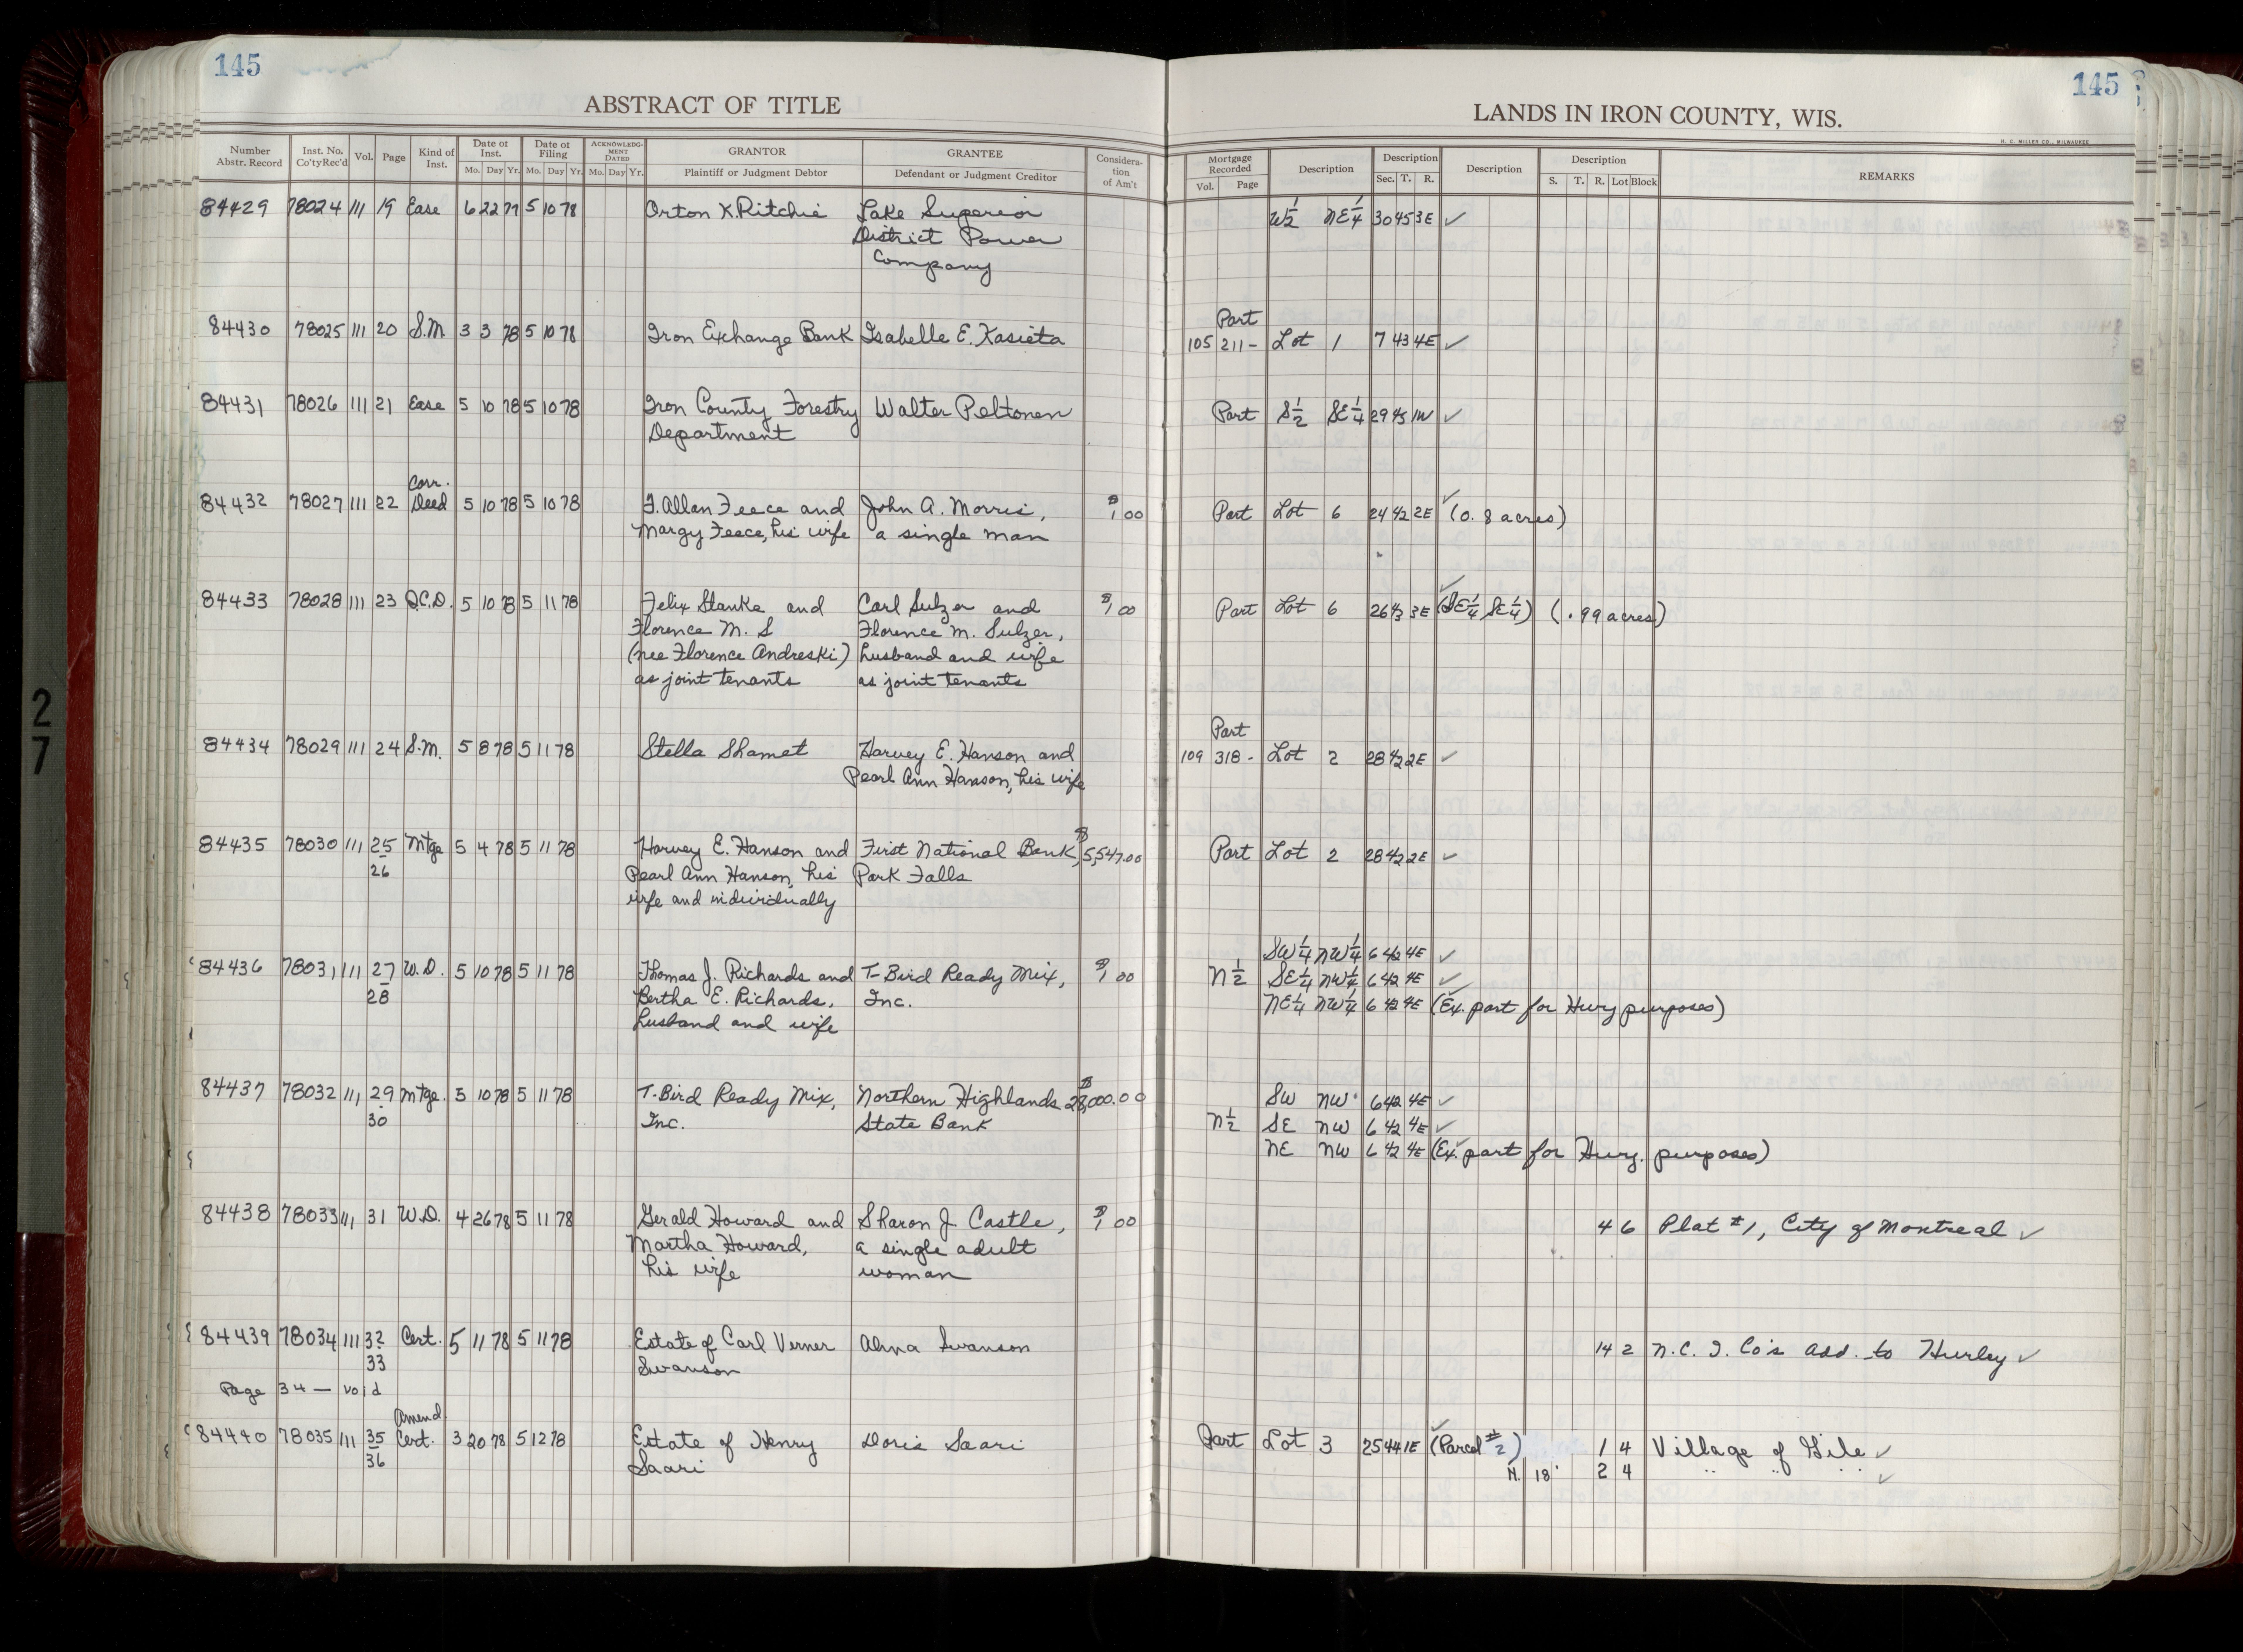 145
145
ABSTRACT OF TITLE
LANDS IN IRON COUNTY, WIS.
H. C. MILLER CO., MILWAUKEE
Number Abstr. Record
Inst. No. Co'ty Rec'd
Vol.
Page
Kind of Inst.
Date of Inst.
Mo. Day Yr.
Date of Filing
Mo. Day Yr.
ACKNOWLEDGMENT DATED
Mo. Day Yr.
GRANTOR
Plaintiff or Judgment Debtor
GRANTEE
Defendant or Judgment Creditor
Consideration of Am't
Mortgage Recorded
Vol. Page
Description
Description
Sec. T. R.
Description
Description
S. T. R. Lot Block
REMARKS
84429 78024 111 19 Ease 6 22 77 5 10 78 Orton K. Ritchie Lake Superior W½ NE¼ 30 45 3E ✓
District Power
Company
Part
84430 78025 111 20 S.M. 3 3 78 5 10 78 Iron Exchange Bank Isabelle E. Kasieta 105 211- Lot 1 7 43 4E ✓
84431 78026 111 21 Ease 5 10 78 5 10 78 Iron County Forestry Walter Peltonen Part S½ SE¼ 29 45 1W ✓
Department
Corr.
84432 78027 111 22 Deed 5 10 78 5 10 78 F. Allan Feece and John A. Morris, $1.00 Part Lot 6 24 42 2E ✓ (0.8 acres)
Margy Feece, his wife a single man
84433 78028 111 23 Q.C.D. 5 10 78 5 11 78 Felix Stanke and Carl Sulzer and $1.00 Part Lot 6 26 43 3E ✓ (SE¼ SE¼) (.99 acres)
Florence M. S Florence M. Sulzer,
(nee Florence Andreski) husband and wife
as joint tenants as joint tenants
Part
84434 78029 111 24 S.M. 5 8 78 5 11 78 Stella Shamet Harvey E. Hanson and 109 318- Lot 2 28 42 2E ✓
Pearl Ann Hanson, his wife
84435 78030 111 25 Mtge 5 4 78 5 11 78 Harvey E. Hanson and First National Bank, $5,547.00 Part Lot 2 28 42 2E ✓
26 Pearl Ann Hanson, his Park Falls
wife and individually
SW¼ NW¼ 6 42 4E ✓
84436 78031 111 27 W.D. 5 10 78 5 11 78 Thomas J. Richards and T-Bird Ready Mix, $1.00 N½ SE¼ NW¼ 6 42 4E ✓
28 Bertha E. Richards, Inc. NE¼ NW¼ 6 42 4E ✓ (Ex. part for Hwy purposes)
husband and wife
84437 78032 111 29 Mtge. 5 10 78 5 11 78 T-Bird Ready Mix, Northern Highlands $28,000.00 SW NW 6 42 4E ✓
30 Inc. State Bank N½ SE NW 6 42 4E ✓
NE NW 6 42 4E ✓ (Ex. part for Hwy. purposes)
84438 78033 111 31 W.D. 4 26 78 5 11 78 Gerald Howard and Sharon J. Castle, $1.00 4 6 Plat #1, City of Montreal ✓
Martha Howard, a single adult
his wife woman
84439 78034 111 32 Cert. 5 11 78 5 11 78 Estate of Carl Verner Alma Swanson 14 2 N.C.I. Co's Add. to Hurley ✓
33 Swanson
Page 34 — void
Amend.
84440 78035 111 35 Cert. 3 20 78 5 12 78 Estate of Henry Doris Saari Part Lot 3 25 44 1E ✓ (Parcel #2) 1 4 Village of Gile ✓
36 Saari N. 18' 2 4 " " " ✓
27